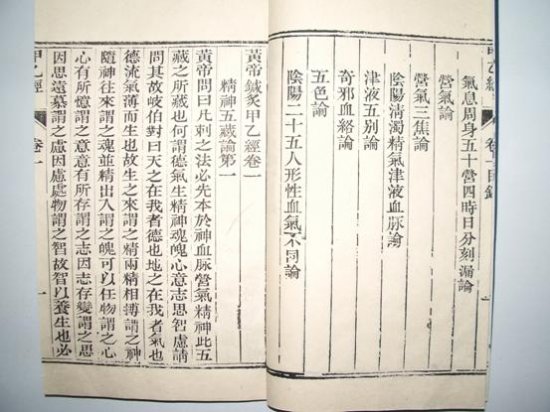 甲乙經 卷一目錄
氣息周身五十營四時日分刻漏論
營氣論
營氣三焦論
陰陽清濁精氣津液血脉論
津液五別論
奇邪血絡論
五色論
陰陽二十五人形性血氣不同論
黃帝鍼灸甲乙經卷一
精神五藏論第一
黃帝問曰凡刺之法必先本於神血脉營氣精神此五
藏之所藏也何謂德氣生精神魂魄心意志思智慮請
問其故岐伯對曰天之在我者德也地之在我者氣也
德流氣薄而生也故生之來謂之精兩精相搏謂之神
隨神往來謂之魂並精出入謂之魄可以任物謂之心
心有所憶謂之意意有所存謂之志因志存變謂之思
因思遠慕謂之慮因慮處物謂之智故智以養生也必
甲乙經 卷一 一